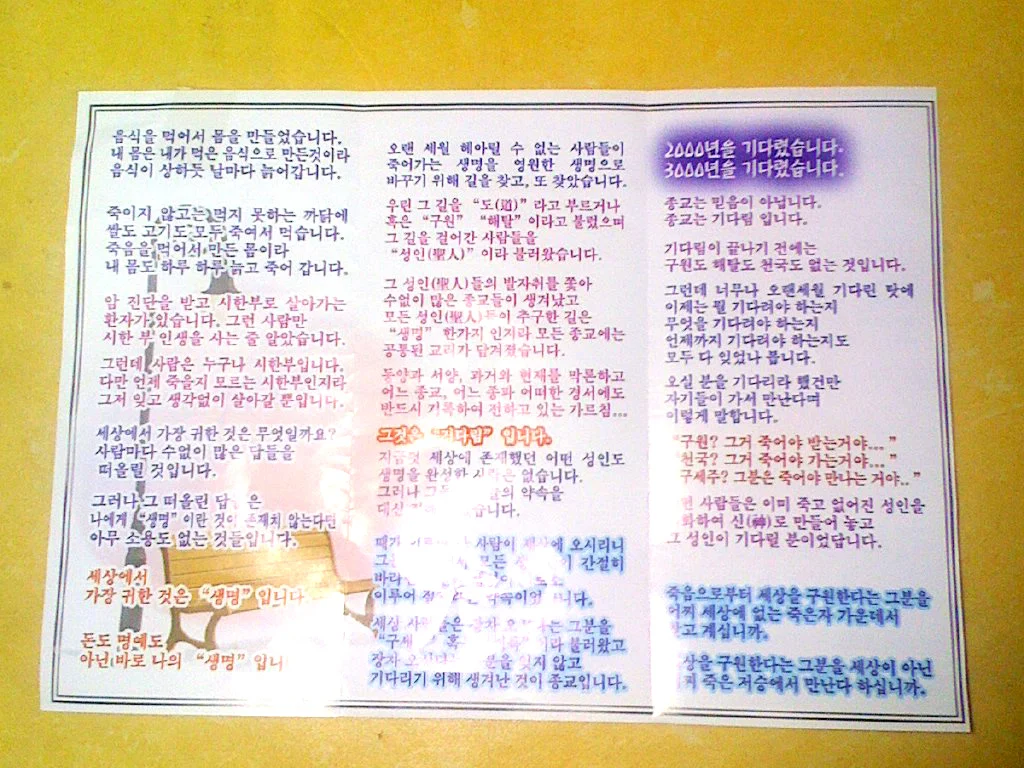 음식을 먹어서 몸을 만들었습니다.
내 몸은 내가 먹은 음식으로 만든것이라
음식이 상하듯 날마다 늙어갑니다.
죽이지 않고는 먹지 못하는 까닭에
쌀도 고기도 모두 죽여서 먹습니다.
죽음을 먹어서 만든 몸이라
내 몸도 하루 하루 늙고 죽어 갑니다.
암 진단을 받고 시한부로 살아가는
환자가 있습니다. 그런 사람만
시한 부 인생을 사는 줄 알았습니다.
그런데 사람은 누구나 시한부입니다.
다만 언제 죽을지 모르는 시한부인지라
그저 잊고 생각없이 살아갈 뿐입니다.
세상에서 가장 귀한 것은 무엇일까요?
사람마다 수없이 많은 답들을
떠올릴 것입니다.
그러나 그 떠올린 답들은
나에게 “생명” 이란 것이 존재치 않는다면
아무 소용도 없는 것들입니다.
세상에서
가장 귀한 것은 “생명” 입니다
돈도 명예도
아닌 바로 나의 “생명” 입니
오랜 세월 헤아릴 수 없는 사람들이
죽어가는 생명을 영원한 생명으로
바꾸기 위해 길을 찾고, 또 찾았습니다.
우린 그 길을 “도(道)” 라고 부르거나
혹은 “구원” “해탈” 이라고 불렀으며
그 길을 걸어간 사람들을
“성인(聖人)” 이라 불러왔습니다.
그 성인(聖人)들의 발자취를 쫓아
수없이 많은 종교들이 생겨났고
모든 성인(聖人)들이 추구한 길은
“생명” 한가지 인지라 모든 종교에는
공통된 교리가 담겨졌습니다.
동양과 서양, 과거와 현재를 막론하고
어느 종교, 어느 종파 어떠한 경서에도
반드시 기록하여 전하고 있는 가르침...
그것은 “기다림” 입니다.
지금껏 세상에 존재했던 어떤 성인도
생명을 완성한 사람은 없습니다.
그러나 그들 의 약속을
대신 습니다.
때가 사람이 세상에 오시리니
모든 간절히
바라
이루어 니다.
세상 사람들은 장차 오 는 그분을
“구세 혹 ” 이라 불러왔고
장차 오시 분을 잊지 않고
기다리기 위해 생겨난 것이 종교입니다.
2000년을 기다렸습니다.
3000년을 기다렸습니다.
종교는 믿음이 아닙니다.
종교는 기다림 입니다.
기다림이 끝나기 전에는
구원도 해탈도 천국도 없는 것입니다.
그런데 너무나 오랜세월 기다린 탓에
이제는 뭘 기다려야 하는지
무엇을 기다려야 하는지
언제까지 기다려야 하는지도
모두 다 잊었나 봅니다.
오실 분을 기다리라 했건만
자기들이 가서 만난다며
이렇게 말합니다.
“구원? 그거 죽어야 받는거야...”
“천국? 그거 죽어야 가는거야...”
“구세주? 그분은 죽어야 만나는 거야..”
사람들은 이미 죽고 없어진 성인을
화하여 신(神)로 만들어 놓고
그 성인이 기다릴 분이었답니다.
죽음으로부터 세상을 구원한다는 그분을
어찌 세상에 없는 죽은자 가운데서
찾고 계십니까.
상을 구원한다는 그분을 세상이 아닌
찌 죽은 저승에서 만난다 하십니까.